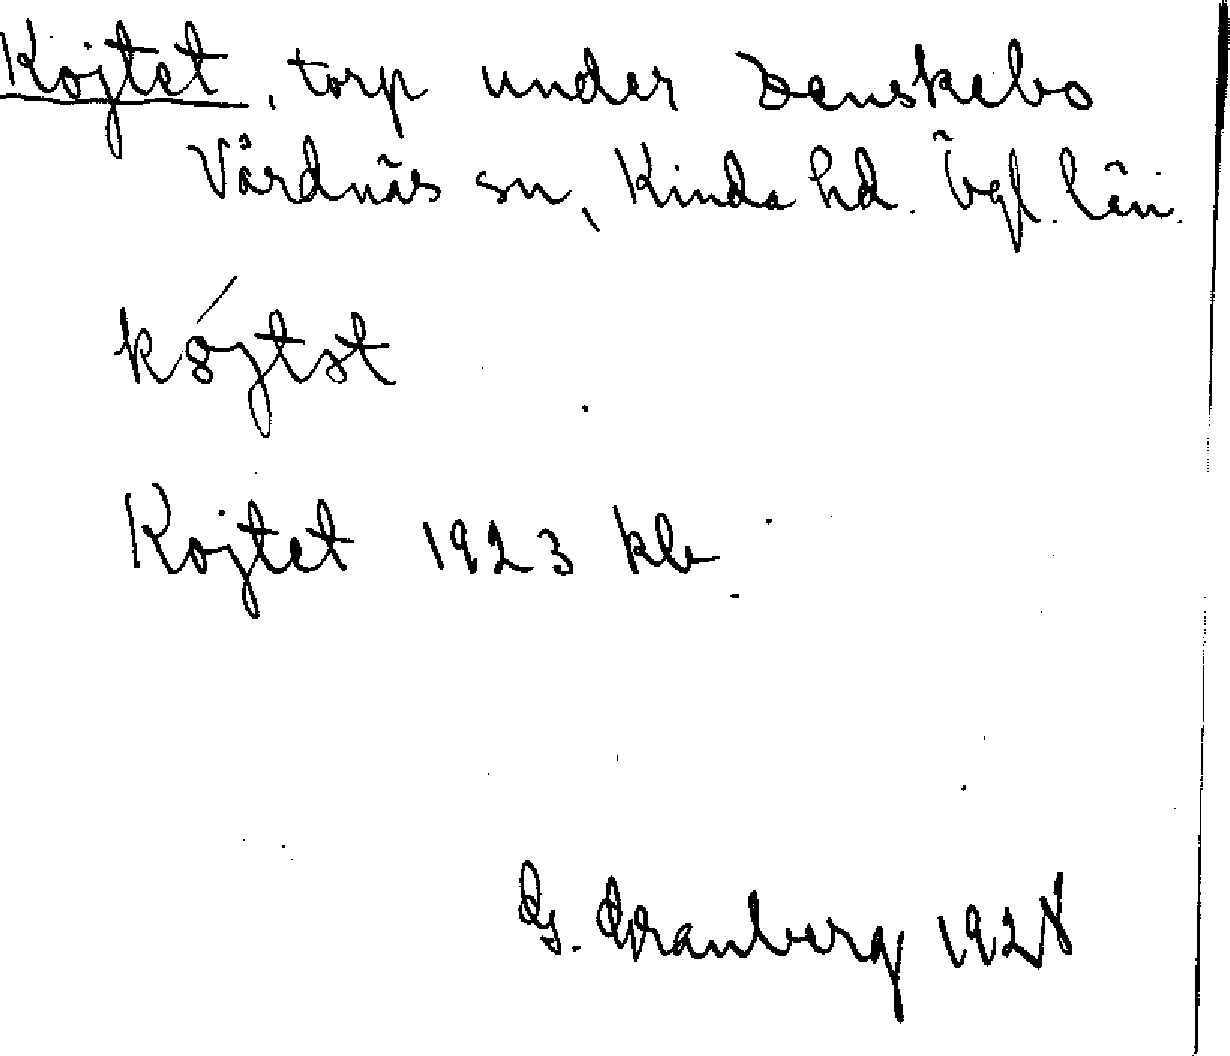 Kojtet, torp under Danskebo
Vårdnäs sn, Kinda hd. Ögl. län.
Kojtet 1923 kb
G. Granberg 1928